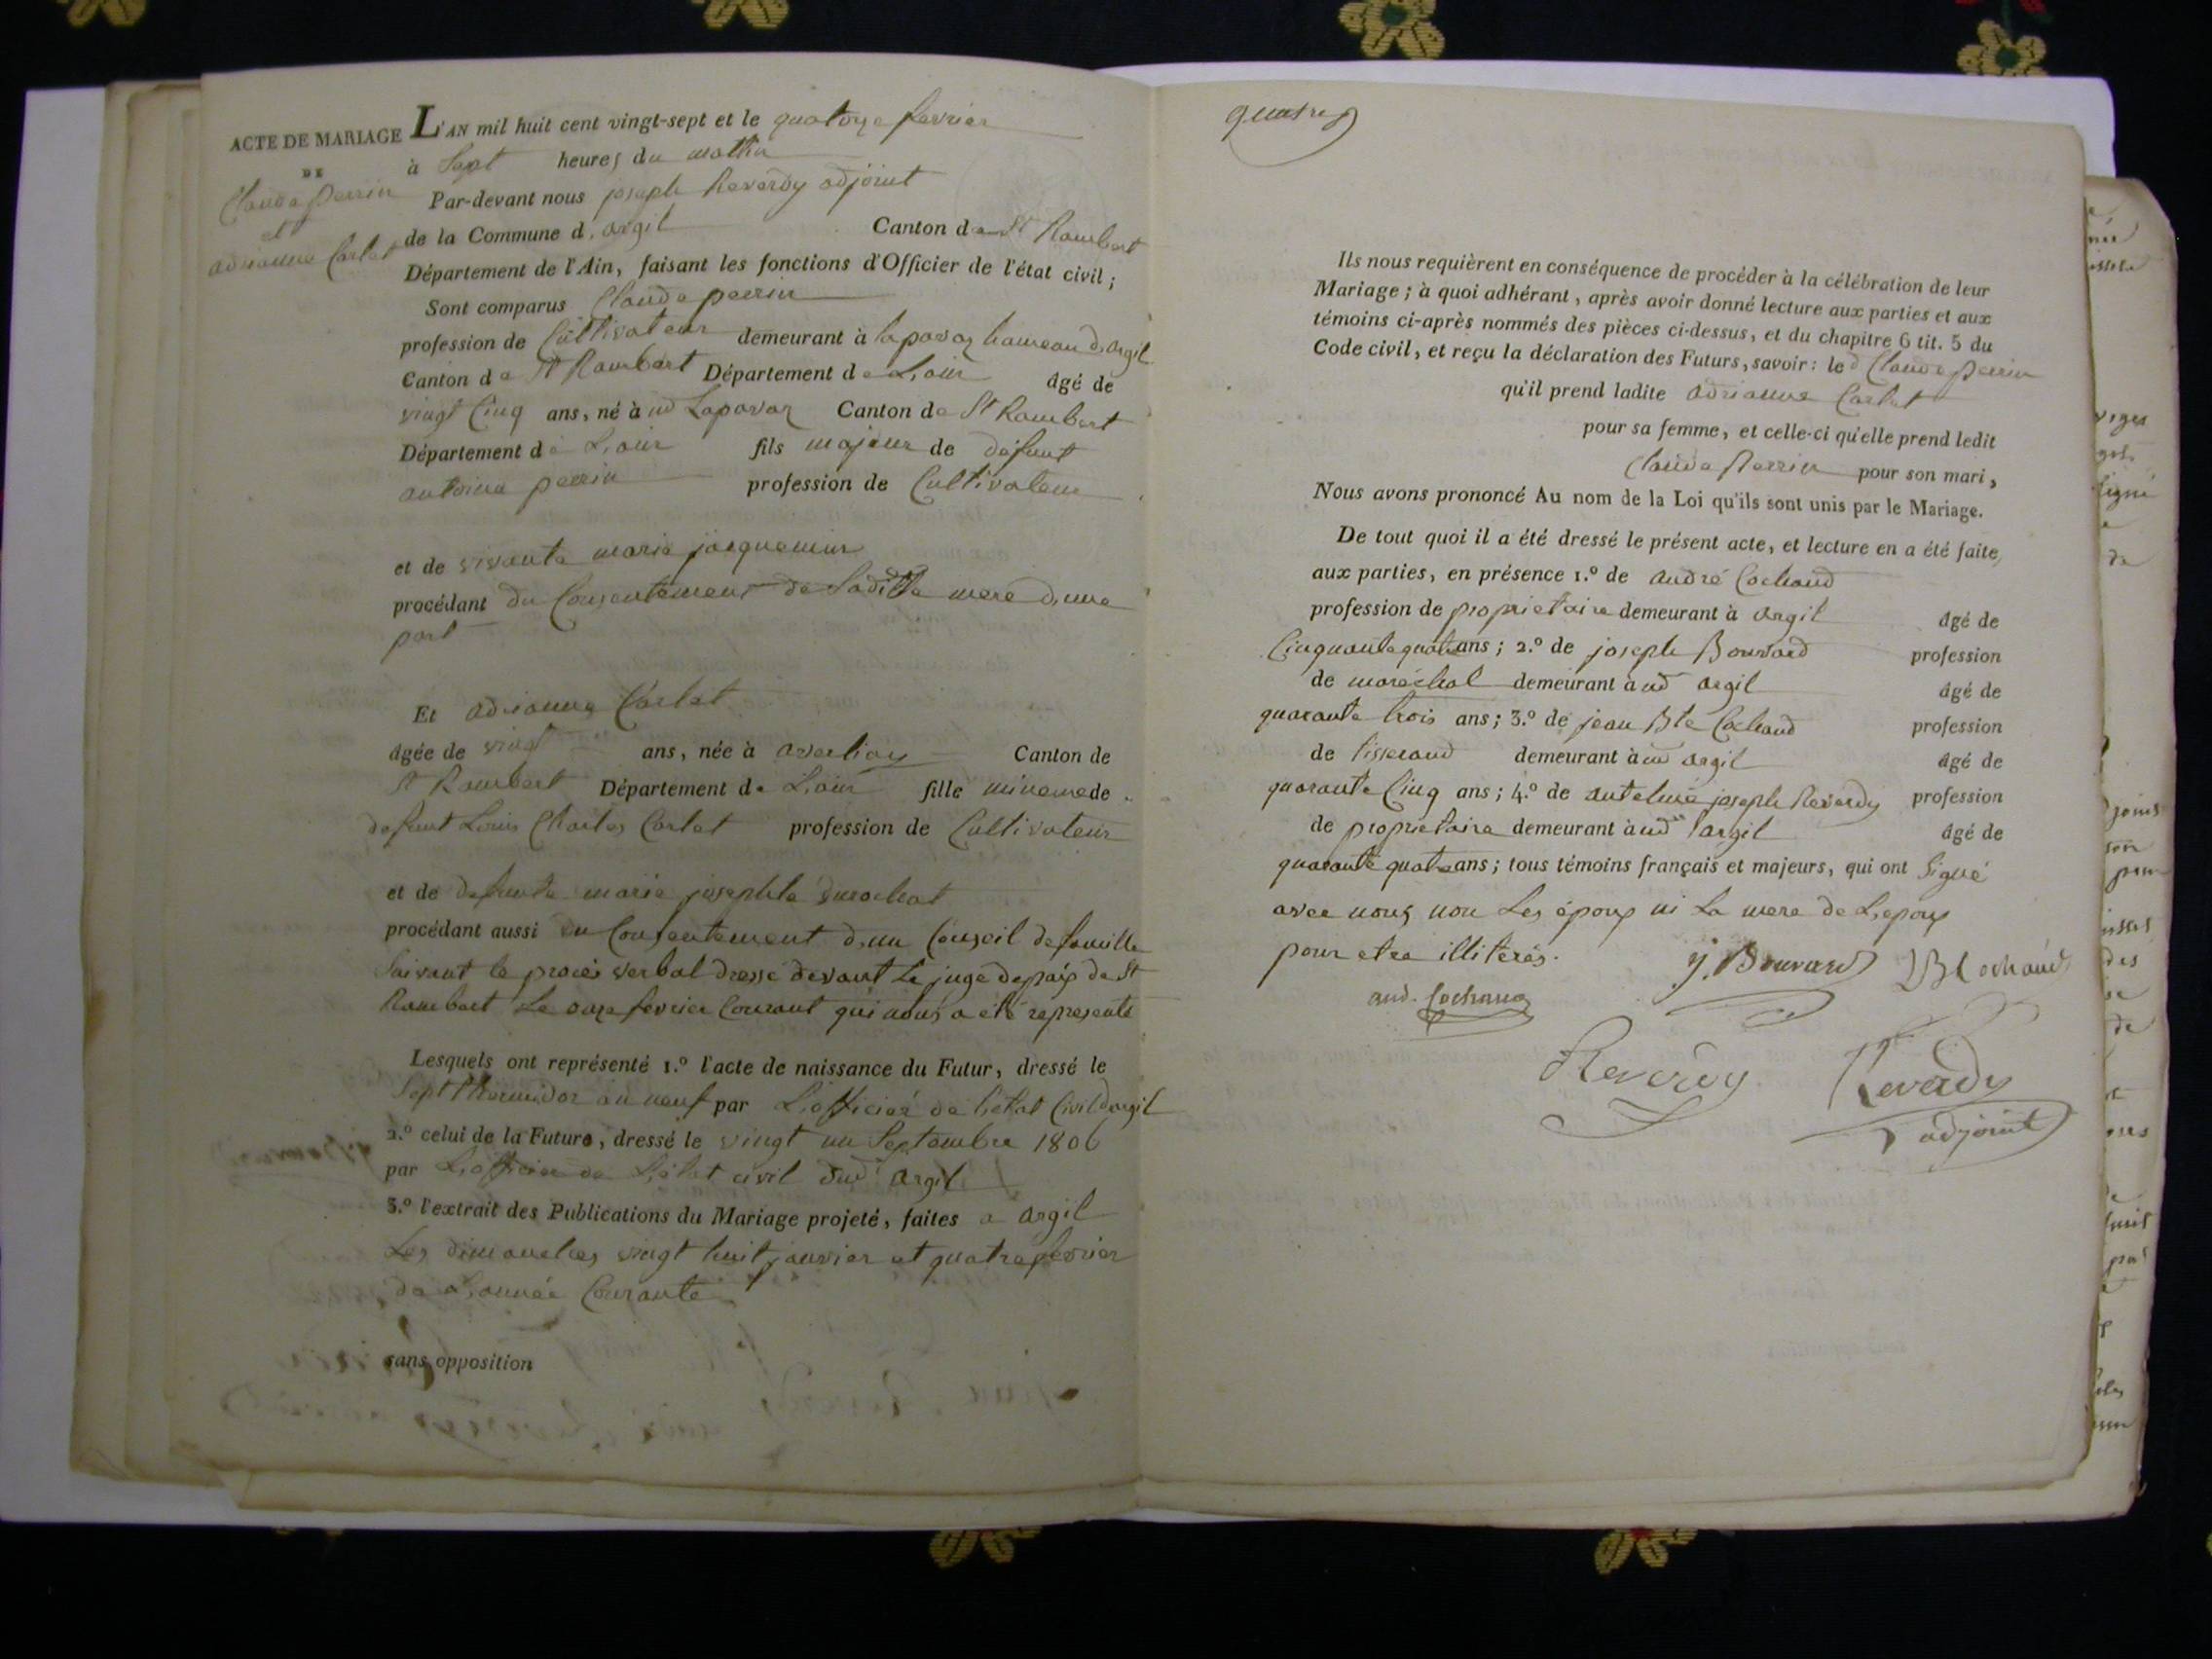 ACTE DE MARIAGE
DE
Claude perrin
et
adrianne Carlet
L'AN mil huit cent vingt-sept et le quatorze fevrier
à Sept heures du matin
Par-devant nous joseph Reverdy adjoint
de la Commune d, argil Canton de St Rambert
Département de l'Ain, faisant les fonctions d'Officier de l'état civil;
Sont comparus Claude perrin
profession de Cultivateur demeurant à lapavaz hameau d, argil
Canton de St Rambert Département de L,ain âgé de
vingt Cinq ans, né à ud Lapavaz Canton de St Rambert
Département de L,ain fils majeur de défunt
antoine perrin profession de Cultivateur
et de vivante marie jacquemin
procédant du Consentement de Saditte mere d,une
part
Et adrianne Carlet
âgée de vingt ans, née à Canton de
St Rambert Département de L,ain fille mineure de
defunt Louis Charles Carlet profession de Cultivateur
et de defunte marie josephte
procédant aussi du Consentement d,un Conseil de famille
Suivant le procès verbal dressé devant Le juge de paix de St
Rambert Le onze fevrier Courant qui nous a eté representé
Lesquels ont représenté 1.º l'acte de naissance du Futur, dressé le
Sept thermidor an neuf par L,officier de l'etat Civil d'argil
2.º celui de la Future, dressé le vingt un Septembre 1806
par L,officier de L,état civil dud argil
3.º l'extrait des Publications du Mariage projeté, faites a argil
Les dimanches vingt huit janvier et quatre fevrier
de L,année Courante
sans opposition
quatre
Ils nous requièrent en conséquence de procéder à la célébration de leur
Mariage; à quoi adhérant, après avoir donné lecture aux parties et aux
témoins ci-après nommés des pièces ci-dessus, et du chapitre 6 tit. 5 du
Code civil, et reçu la déclaration des Futurs, savoir: led Claude perrin
qu'il prend ladite adrianne Carlet
pour sa femme, et celle-ci qu'elle prend ledit
Claude Perrin pour son mari,
Nous avons prononcé Au nom de la Loi qu'ils sont unis par le Mariage.
De tout quoi il a été dressé le présent acte, et lecture en a été faite,
aux parties, en présence 1.º de andré Cochaud
profession de proprietaire demeurant à argil âgé de
Cinquante quatre ans; 2.º de joseph Bouvard profession
de maréchal demeurant à ud argil âgé de
quarante trois ans; 3.º de jean Bte Cochaud profession
de tisserand demeurant à ud argil âgé de
quarante Cinq ans; 4.º de antelme joseph Reverdy profession
de proprietaire demeurant à ud argil âgé de
quarante quatre ans; tous témoins français et majeurs, qui ont Signé
avec nous non Les époux ni La mere de L,epoux
pour etre illiterés.
and. Cochaud
j. Bouvard
JB Cochaud
Reverdy
Reverdy
adjoint